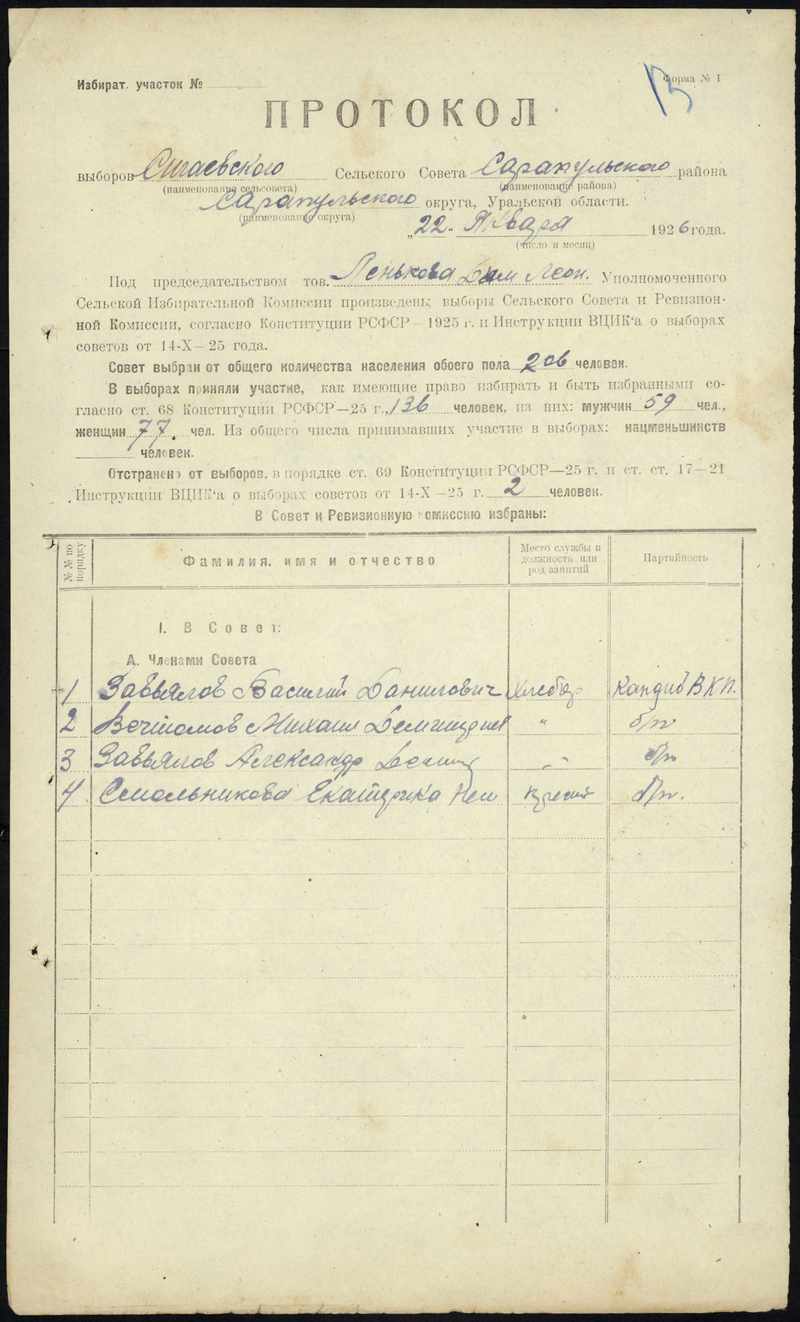 Избират. участок №
Форма № 1
ПРОТОКОЛ
выборов Сигаевского Сельского Совета Сарапульского района
(наименование сельсовета) (наименование района)
Сарапульского округа, Уральской области.
(наименование округа)
„22. Января 1926 года.
(число и месяц)
Под председательством тов. Пенькова Леон. Уполномоченного
Сельской Избирательной Комиссии произведены выборы Сельского Совета и Ревизион-
ной Комиссии, согласно Конституции РСФСР—1925 г. и Инструкции ВЦИК'а о выборах
советов от 14-X—25 года.
Совет выбран от общего количества населения обоего пола человек.
В выборах приняли участие, как имеющие право избирать и быть избранными со-
гласно ст. 68 Конституции РСФСР—25 г., 136 человек, из них: мужчин 59 чел.,
женщин 77. чел. Из общего числа принимавших участие в выборах: нацменьшинств
человек.
Отстранено от выборов, в порядке ст. 69 Конституции РСФСР—25 г. и ст. ст. 17—21
Инструкции ВЦИК'а о выборах советов от 14-X—25 г. 2 человек.
В Совет и Ревизионную комиссию избраны:
№№ по порядку
Фамилия, имя и отчество
Место службы и должность или род занятий
Партийность
I. В Совет:
А. Членами Совета
1 Завьялов Василий Данилович Хлебор Кандид ВКП.
2 Вечтомов Михаил „ б/п
3 Завьялов Александр „ б/п
4 Смольникова Екатерина б/п.